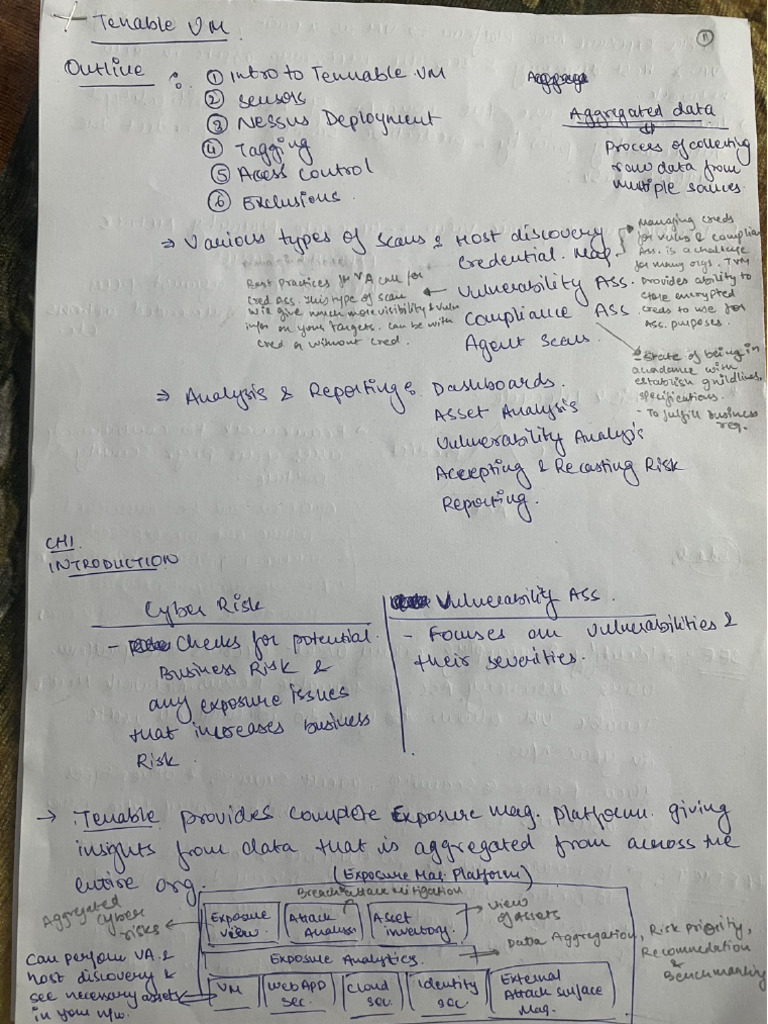 Tenable VM.
①
Outline :
① Intro to Tennable VM
② Sensors
③ Nessus Deployment
④ Tagging
⑤ Access Control
⑥ Exclusions.
Aggregated data.
Process of collecting
raw data from
multiple sources.
⇒ Various types of scans : Host discovery
Credential Mag.
Vulnerability Ass.
Compliance Ass
Agent Scans.
→ Managing creds
for vulns & complian
Ass. is a challenge
for many orgs. TVM
Provides ability to
store encrypted
creds to use for
Ass. purposes.
Best Practices for VA call for
Cred Ass. This type of scan
will give much more visibility & vuln
infos on your targets. can be with
cred or without cred.
- State of being in
acoadance with
establish guildlines,
specifications.
- To fulfill business
req.
⇒ Analysis & Reporting : Dashboards.
Asset Analysis
Vulnerability Analysis
Accepting & Recasting Risk
Reporting.
CH1.
INTRODUCTION
Cyber Risk
- Checks for potential
Business Risk &
any exposure issues
that increases business
Risk.
Vulnerability Ass.
- Focuses on vulnerabilities &
their severities.
→ Tenable provides complete Exposure Mag. Platform. giving
insights from data that is aggregated from across the
entire org.
(Exposure Mag. Platform)
Breach attack mitigation
Aggregated
Cyber
risks
Exposure
View.
Attack
Analysis
Asset
inventory.
→ view
of Assets
Exposure Analytics.
→ Data Aggregation, Risk Priority,
Recommedation
&
Benchmarking
Can perform VA &
host discovery &
see necessary assets
in your n/w.
VM
Web App
Sec.
Cloud
Sec.
Identity
sec
External
Attack Surface
Mag.